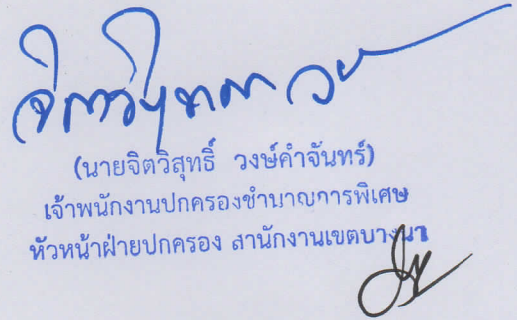 (นายจิตวิสุทธิ์ วงษ์คำจันทร์)
เจ้าพนักงานปกครองชำนาญการพิเศษ
หัวหน้าฝ่ายปกครอง สำนักงานเขตบางนา